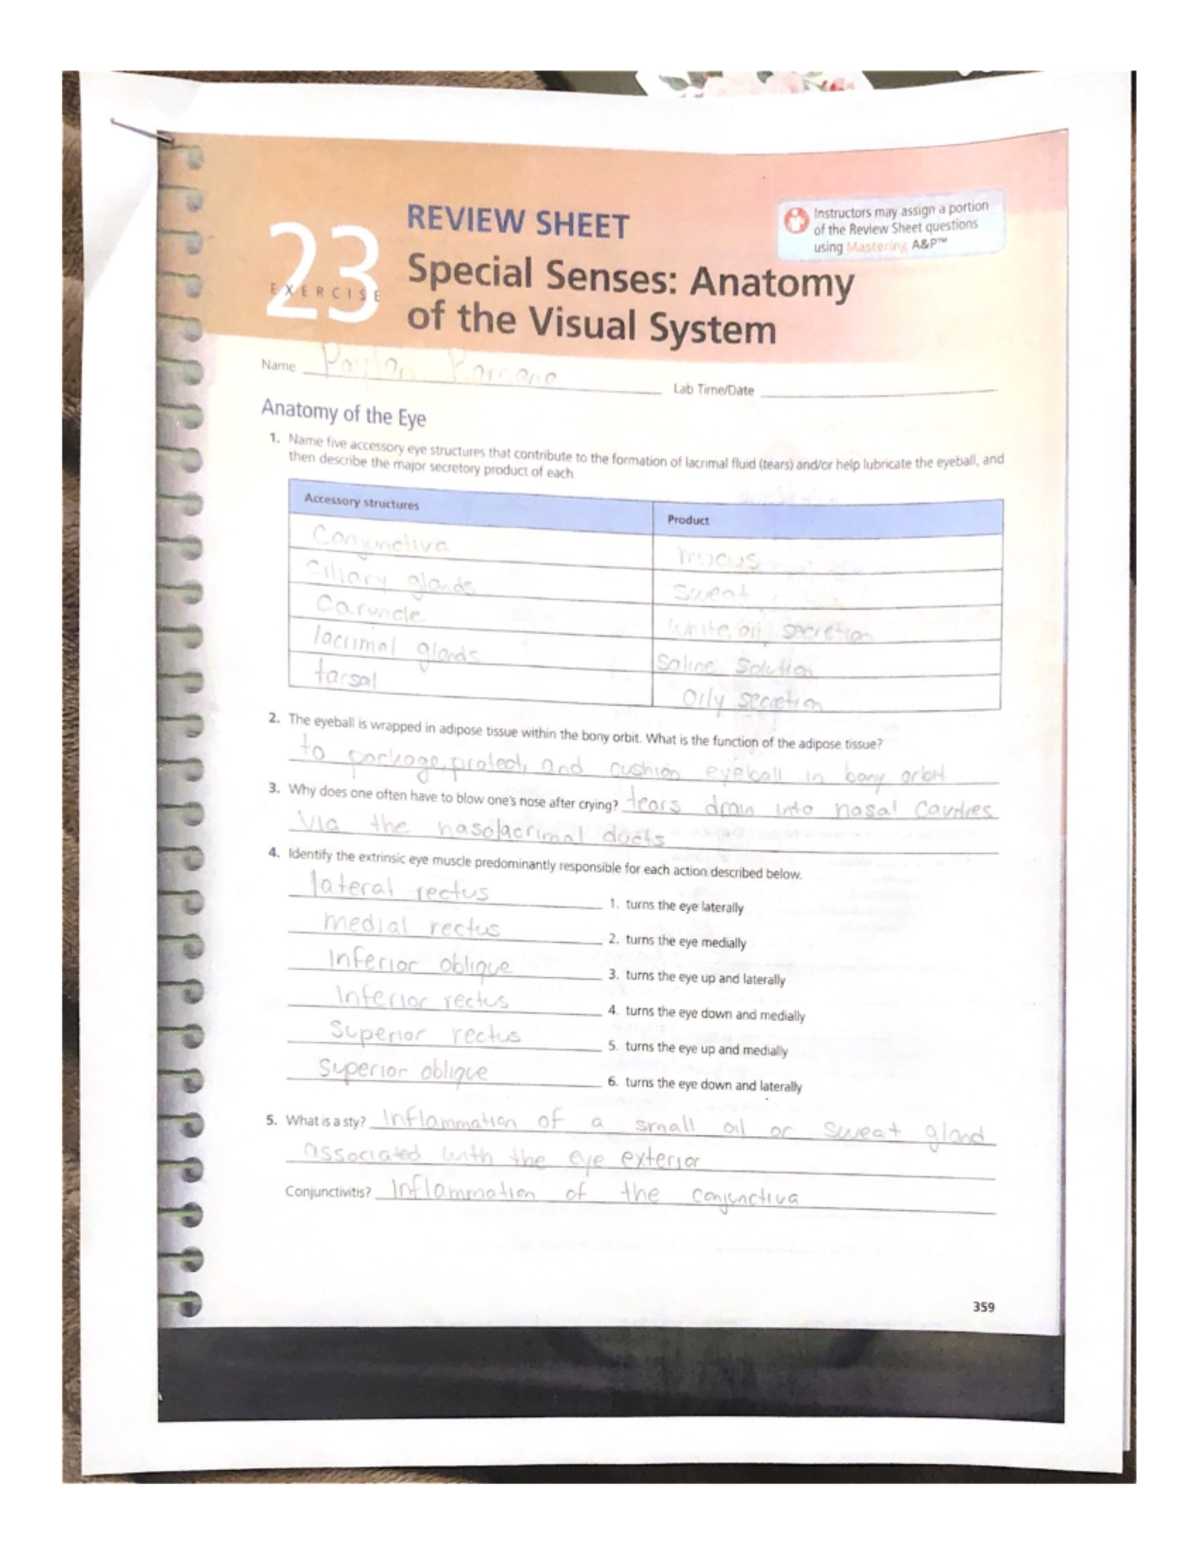 REVIEW SHEET
Instructors may assign a portion
of the Review Sheet questions
using Mastering A&P™
23
EXERCISE
Special Senses: Anatomy
of the Visual System
Name Romano
Lab Time/Date
Anatomy of the Eye
1. Name five accessory eye structures that contribute to the formation of lacrimal fluid (tears) and/or help lubricate the eyeball, and
then describe the major secretory product of each.
Accessory structures Product
Conjunctiva mucus
Ciliary glands sweat
Caruncle white, oil, secretion
lacrimal glands Saline solution
tarsal Oily secretion
2. The eyeball is wrapped in adipose tissue within the bony orbit. What is the function of the adipose tissue?
to package, protect, and cushion eyeball in bony orbit
3. Why does one often have to blow one's nose after crying? tears drain into nasal cavities
via the nasolacrimal ducts
4. Identify the extrinsic eye muscle predominantly responsible for each action described below.
lateral rectus 1. turns the eye laterally
medial rectus 2. turns the eye medially
Inferior oblique 3. turns the eye up and laterally
Inferior rectus 4. turns the eye down and medially
Superior rectus 5. turns the eye up and medially
Superior oblique 6. turns the eye down and laterally
5. What is a sty? Inflammation of a small oil or sweat gland
associated with the eye exterior
Conjunctivitis? Inflammation of the conjunctiva
359